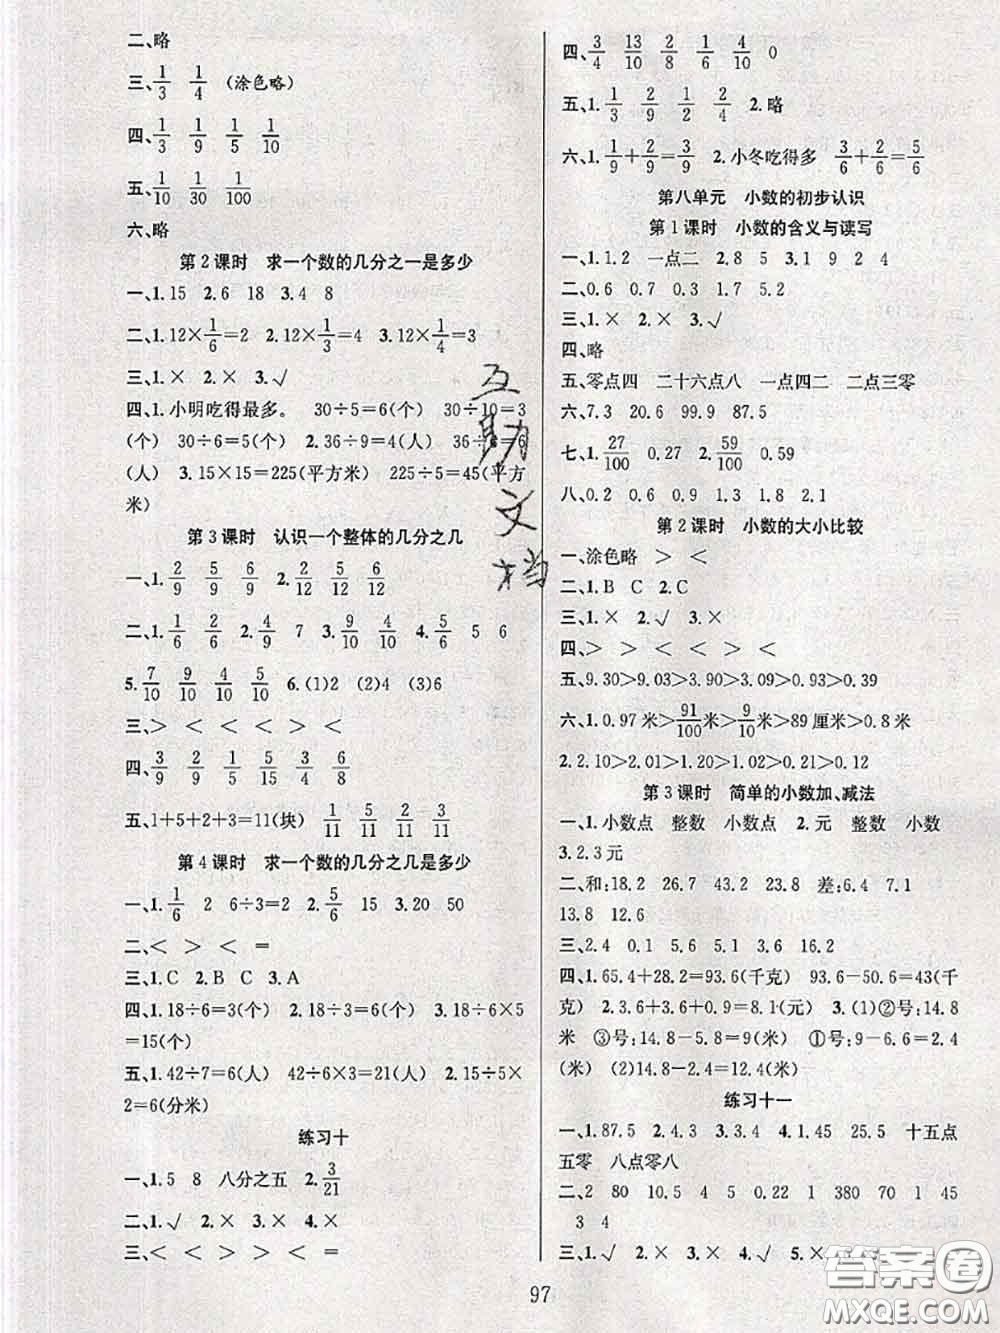 二、略
三、1/3 1/4 (涂色略)
四、1/3 1/9 1/5 1/10
五、1/10 1/30 1/100
六、略
第2课时 求一个数的几分之一是多少
一、1.15 2.6 18 3.4 8
二、1.12×1/6=2 2.12×1/3=4 3.12×1/4=3
三、1.× 2.× 3.√
四、1.小明吃得最多。 30÷5=6(个) 30÷10=3
(个) 30÷6=5(个) 2.36÷9=4(人) 36÷6=6
(人) 3.15×15=225(平方米) 225÷5=45(平方
米)
第3课时 认识一个整体的几分之几
一、1.2/9 5/9 6/9 2.2/12 5/12 5/12
二、1.1/6 2/6 2.4/9 7 3.9/10 4/10 4.5/6 5 6
5.7/10 9/10 4/10 5/10 6.(1)2 (2)4 (3)6
三、> < < < <
四、3/9 2/9 1/5 3/5 4/8 6/8
五、1+5+2+3=11(块) 1/11 5/11 2/11 3/11
第4课时 求一个数的几分之几是多少
一、1.1/6 2 6÷3=2 2.5/6 15 3.20 50
二、< > < =
三、1.C 2.B 3.A
四、1.18÷6=3(个) 2.18÷6=3(个) 3.18÷6×5
=15(个)
五、1.42÷7=6(人) 42÷6×3=21(人) 2.15÷5×
2=6(分米)
练习十
一、1.5 8 八分之五 2.3/21
二、1.√ 2.× 3.× 4.×
三、< < > > < =
四、3/4 13/10 2/8 1/6 4/10 0
五、1.1/3 2/9 1/2 2/4 2.略
六、1.1/9+2/9=3/9 2.小冬吃得多 3/6+2/6=5/6
第八单元 小数的初步认识
第1课时 小数的含义与读写
一、1.1.2 一点二 2.8 5 3.1 9 2 4
二、0.6 0.7 0.3 1.7 5.2
三、1.× 2.× 3.√
四、略
五、零点四 二十六点八 一点四二 二点三零
六、7.3 20.6 99.9 87.5
七、1.27/100 0.27 2.59/100 0.59
八、0.2 0.4 1.1 1.8 2.1
第2课时 小数的大小比较
一、涂色略 > <
二、1.B C 2.C
三、1.× 2.√ 3.×
四、> > < > <
五、9.30>9.03>3.90>3.09>0.93>0.39
六、1.0.97米>91/100米>9/10米>89厘米>0.8米
2.2.10>2.01>1.20>1.02>0.21>0.12
第3课时 简单的小数加、减法
一、1.小数点 整数 小数点 2.元 整数 小数
3.2.3元
二、和:18.2 26.7 43.2 23.8 差:6.4 7.1
13.8 12.6
三、2.4 0.1 5.6 5.1 3.6 12.2 4.9
四、1.65.4+28.2=93.6(千克) 93.6-50.6=43(千
克) 2.3.6+3.6+0.9=8.1(元) 3.(1)②号:14.8
米 ③号:14.8-5.8=9(米) ①号:9-6.6=2.4
(米) (2)14.8-2.4=12.4(米)
练习十一
一、1.87.5 2.4.3 3.3.4 4.1.45 25.5 十五点
五零 八点零八
二、2 80 10.5 4 5 0.22 1 380 70 1 45
3 4
三、1.√ 2.× 3.× 4.√ 5.×
97
互助文档
答案圈
MXQE.COM